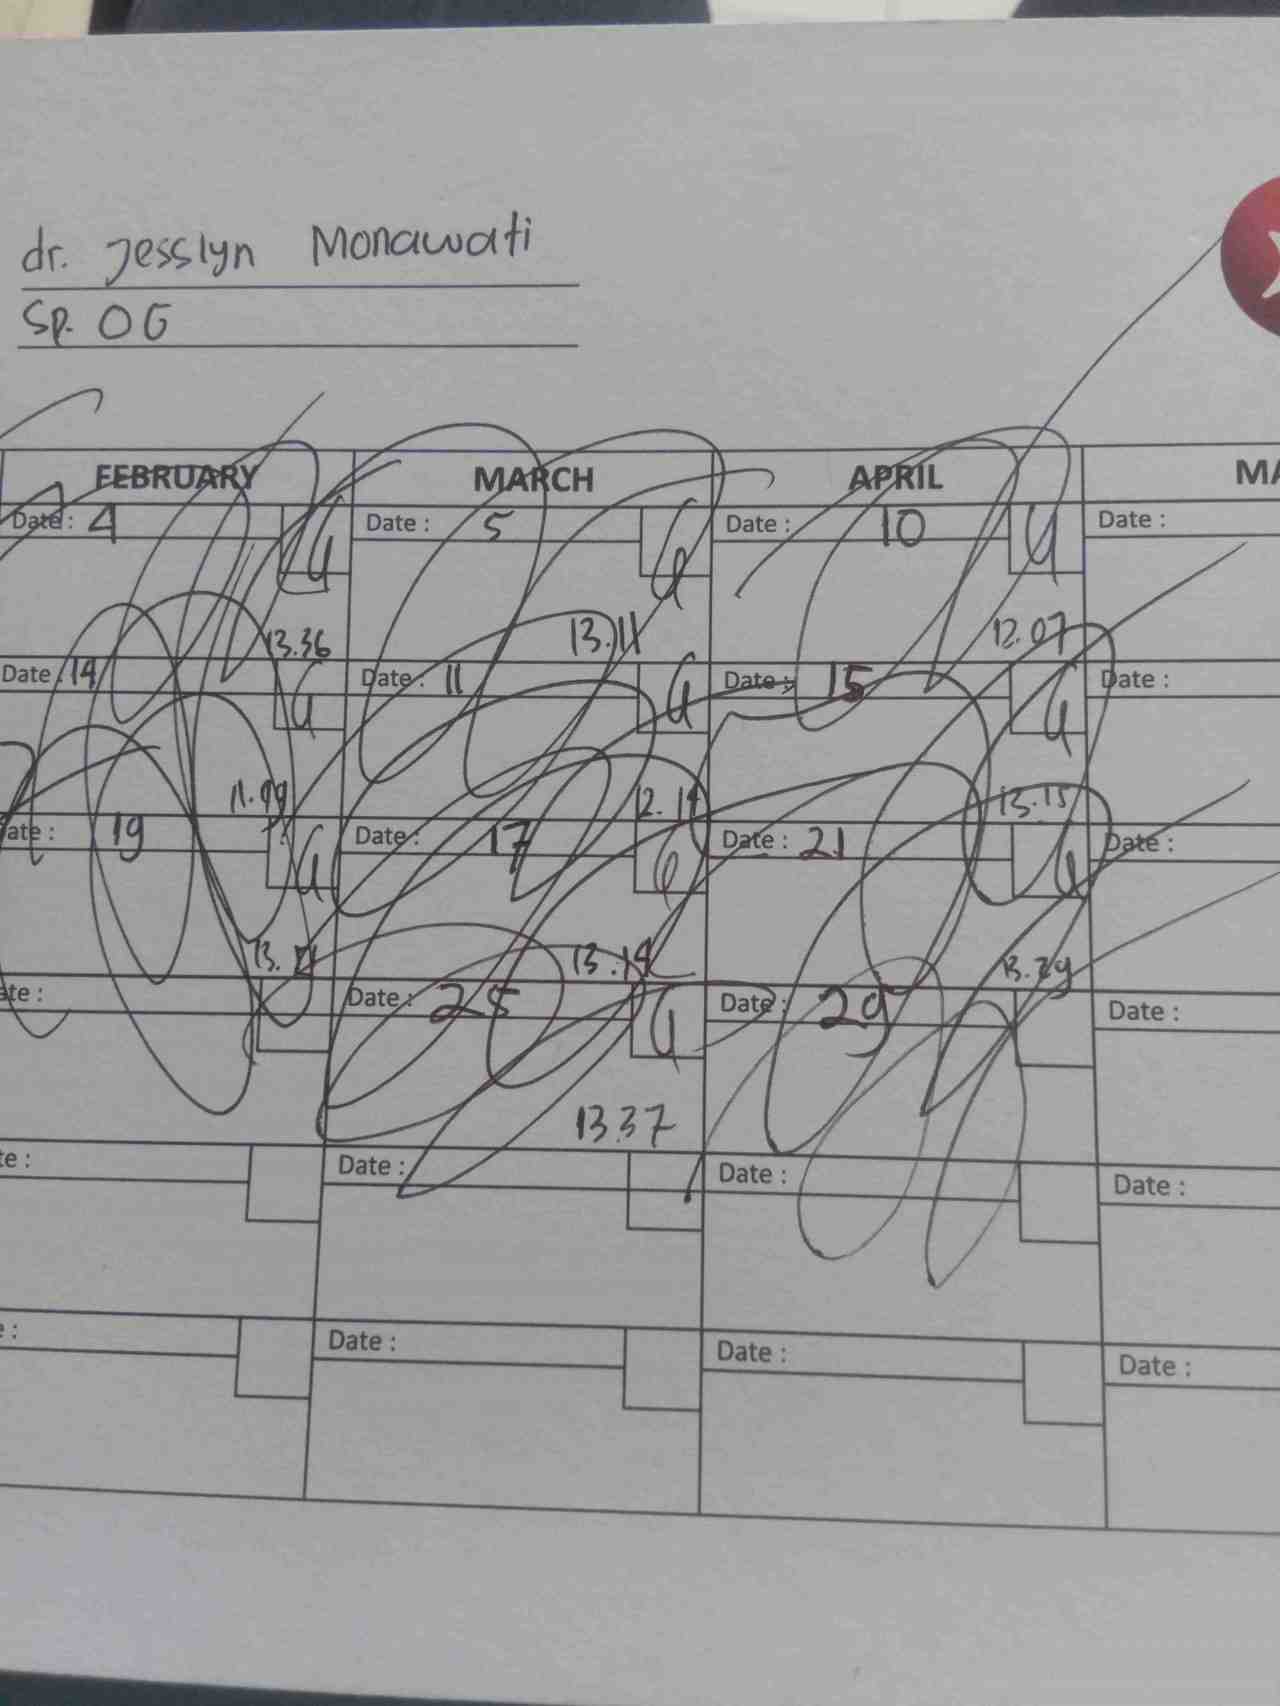 dr. Jesslyn Monawati
Sp. OG
FEBRUARY MARCH APRIL
Date : 4 Date : 5 Date : 10 Date :
13.36 13.11 12.07
Date : 14 Date : 11 Date : 15 Date :
13.15
19 Date : 17 Date : 21 Date :
13.29
Date : 25 Date : 29 Date :
13.37
Date : Date : Date :
Date : Date : Date :